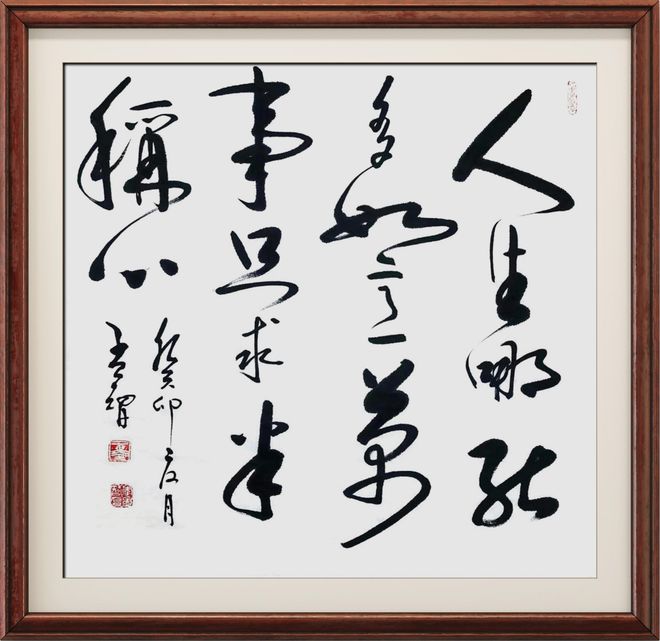 人生哪能
多如意萬
事只求半
稱心
癸卯夏月